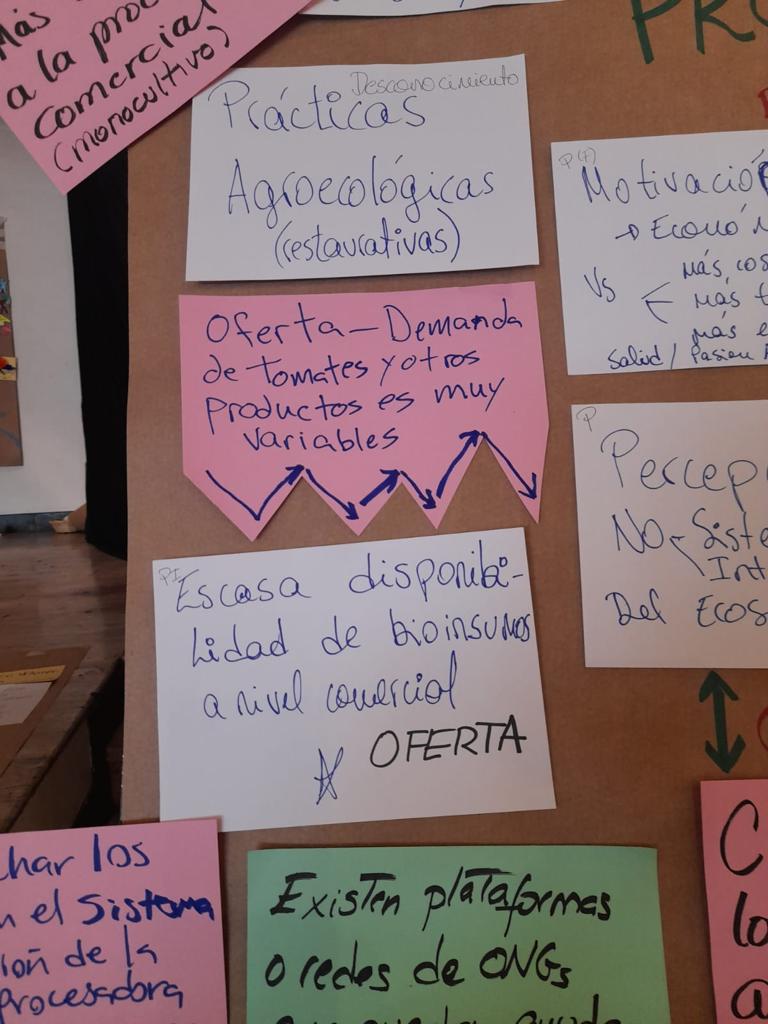 Más
a la pro
comercial
(monocultivo)
PR
Desconocimiento
Prácticas
Agroecológicas
(restaurativas)
P (7)
Motivació
→ Econó
Vs
más cos
más t
más e
Salud / Pasión
Oferta – Demanda
de tomates y otros
productos es muy
variables
P
Percep
No - Siste
Int
Del Ecos
PI
Escasa disponibi-
lidad de bioinsumos
a nivel comercial
OFERTA
char los
n el sistema
ión de la
procesadora
Existen plataformas
o redes de ONGs
C
lo
a